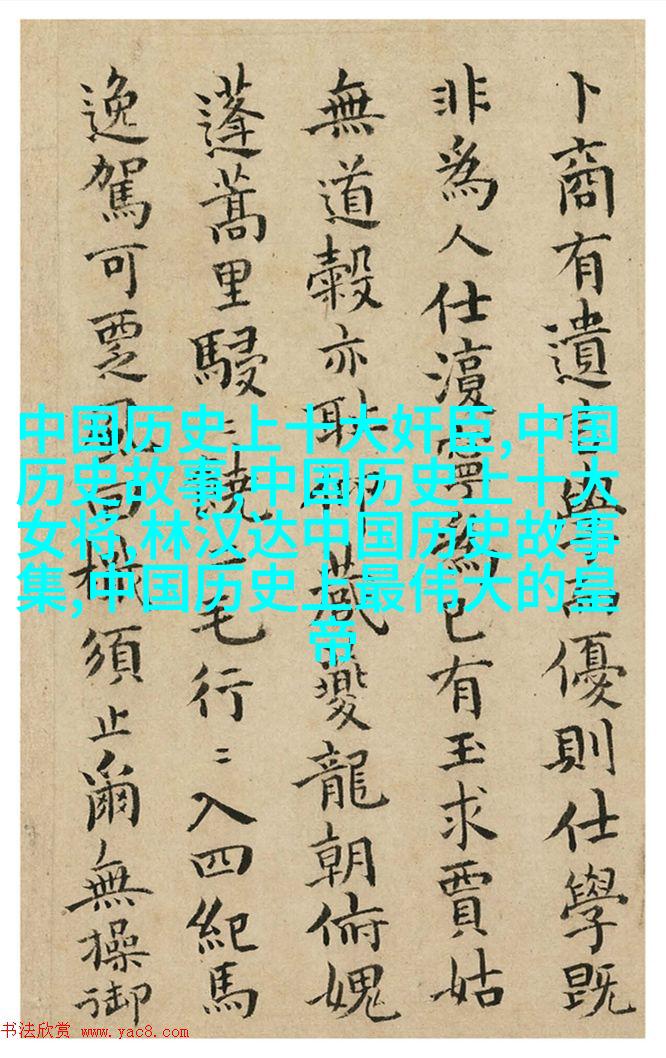 卜商有遺優則仕學既
非為人仕有玉求賈姑
無道穀亦夔龍朝俯媿
蓬蒿里駸毛行〻入四紀馬
逸駕可覂須止爾無操御
中国历史上十大奸臣,中国
历史故事,中国历史上十大
女将,林汉达中国历史故事
集,中国历史上最伟大的皇
帝
书法欣赏 www.yac8.com